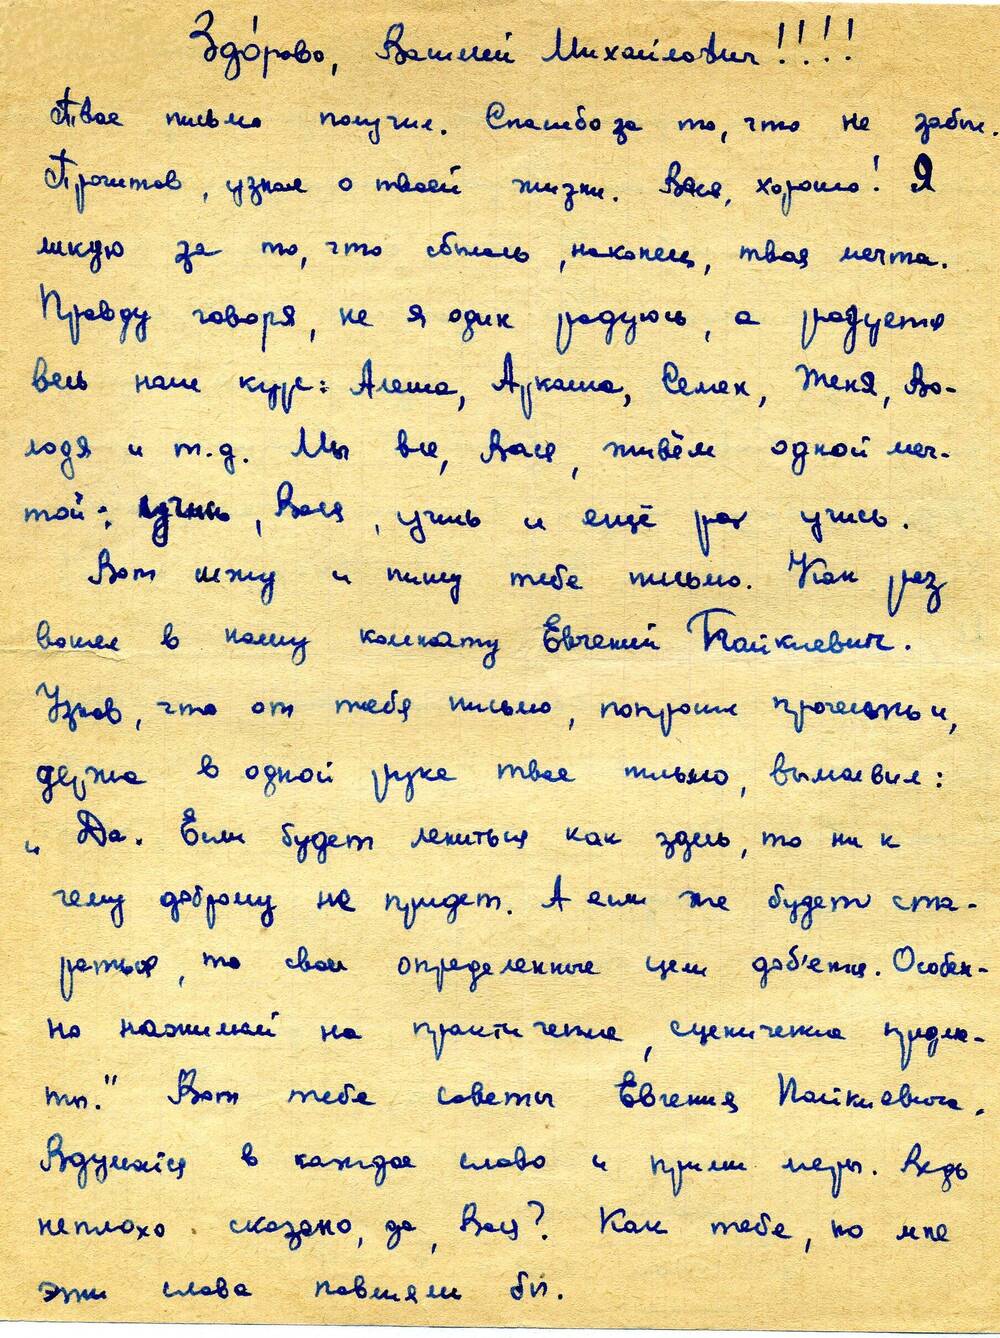 Здо́рово, Василий Михайлович!!!!
Твое письмо получил. Спасибо за то, что не забыл.
Прочитав, узнал о твоей жизни. Вася, хорошо! Я
ликую за то, что сбылась, наконец, твоя мечта.
Правду говоря, не я один радуюсь, а радуется
весь наш курс: Алеша, Аркаша, Семен, Женя, Во-
лодя и т.д. Мы все, Вася, живём одной меч-
той: учись, Вася, учись и ещё раз учись.
Вот сижу и пишу тебе письмо. Как раз
вошел в нашу комнату Евгений Пайкиевич.
Узнав, что от тебя письмо, попросил прочитать и,
держа в одной руке твое письмо, вымолвил:
„Да. Если будет лениться как здесь, то ни к
чему доброму не придет. А если же будет ста-
раться, то свои определенные цели доб'ется. Особен-
но нажимай на практические, сценические предме-
ты." Вот тебе советы Евгения Пайкиевича.
Вдумайся в каждое слово и прими меры. Ведь
неплохо сказано, да, Вася? Как тебе, но мне
эти слова повлияли бы.